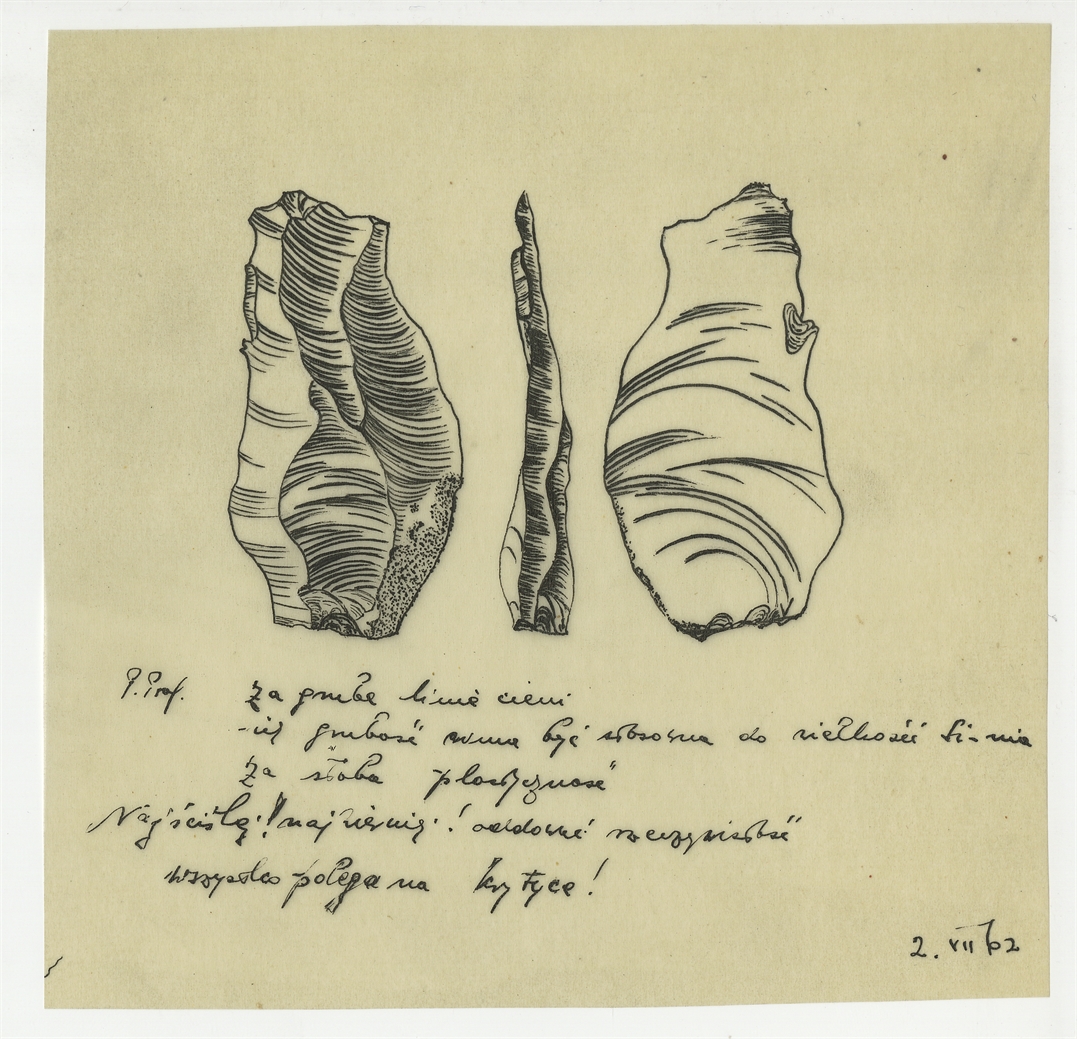 P. Prof. Za grube linie cieni
- ich grubość winna być stosowna do wielkości
Za słaba plastyczność
Najściślej! najwierniej! oddawać rzeczywistość
wszystko polega na krytyce!
2. VII 62